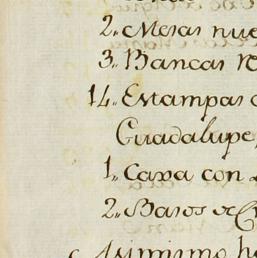 2,, Mesas nue
3,, Bancas
14,, Estampas
Guadalupe,
1,, Caxa con
2,, Basos
Asimismo